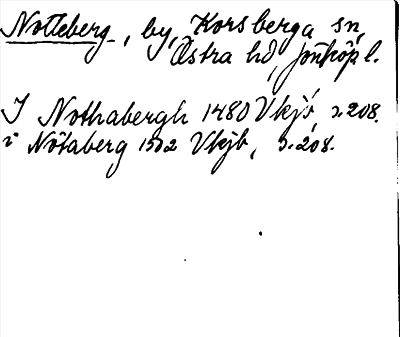 Notteberg, by, Korsberga sn,
Östra hd, Jönköp l.
I Nothabergh 1480 Vkjb, s. 208.
i Nötaberg 1502 Vkjb, s. 208.